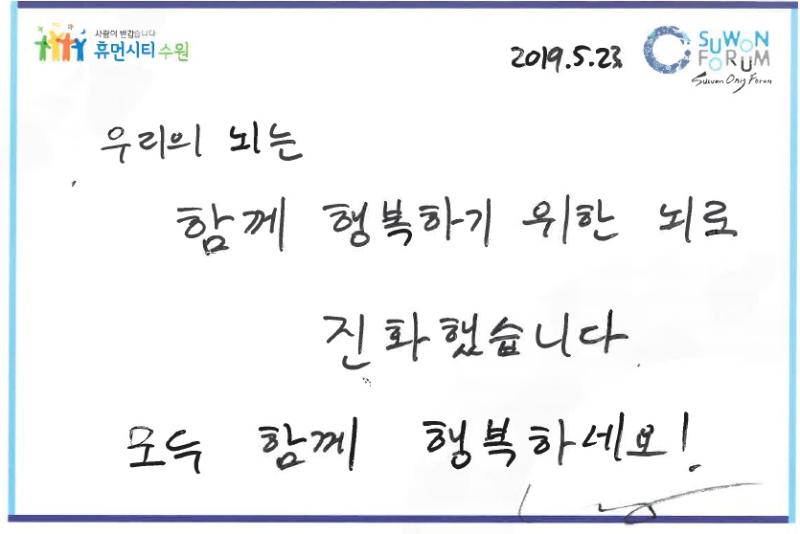 사람이 반갑습니다
휴먼시티 수원
2019.5.23
SUWON
FORUM
Suwon Ong Forum
우리의 뇌는
함께 행복하기 위한 뇌로
진화했습니다
모두 함께 행복하세요!